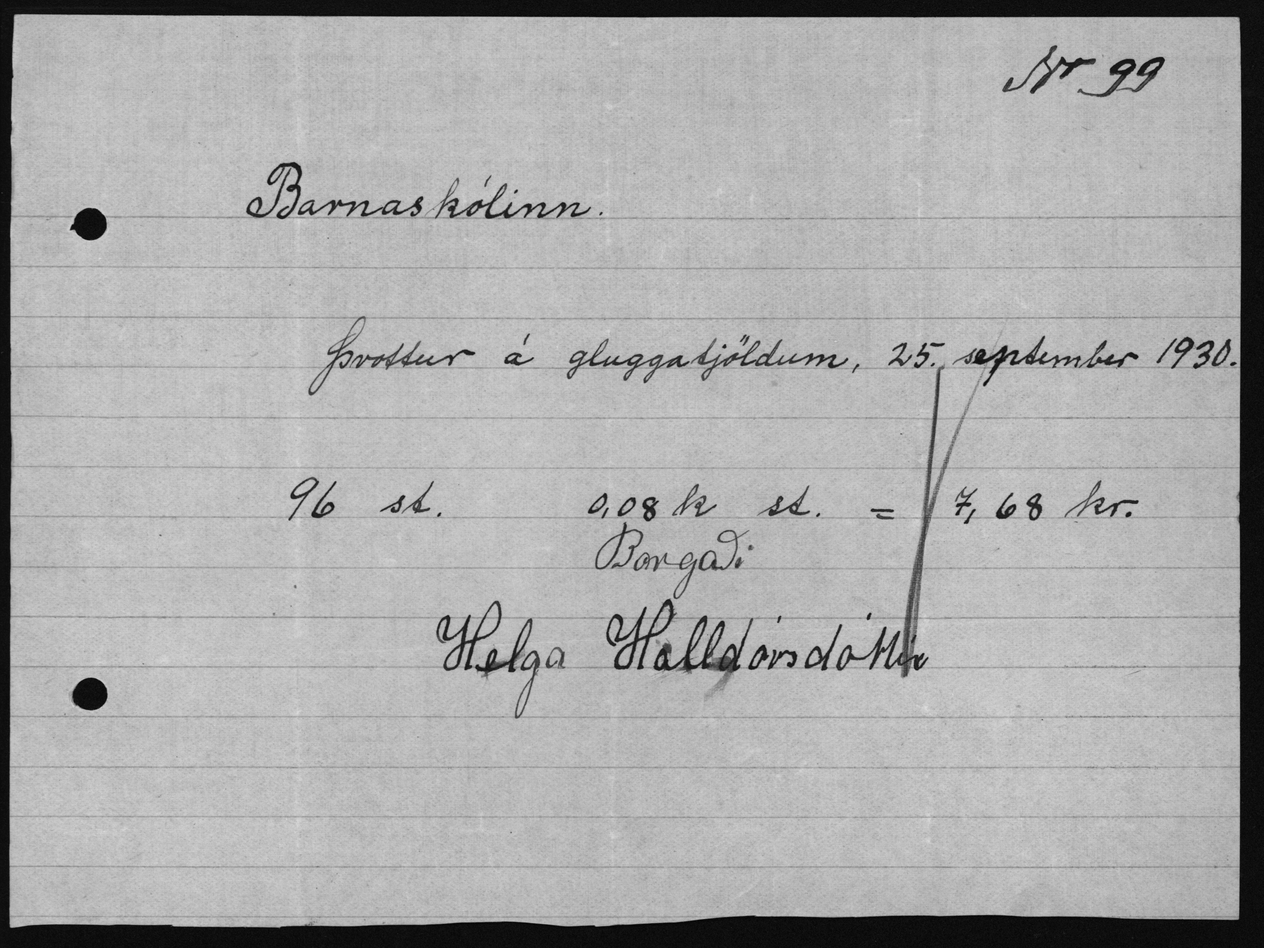 Nr 99
Barnaskólinn.
Þvottur á gluggatjöldum, 25. september 1930.
96 st. 0,08 k st. = 7,68 kr.
Borgað
Helga Halldórsdóttir